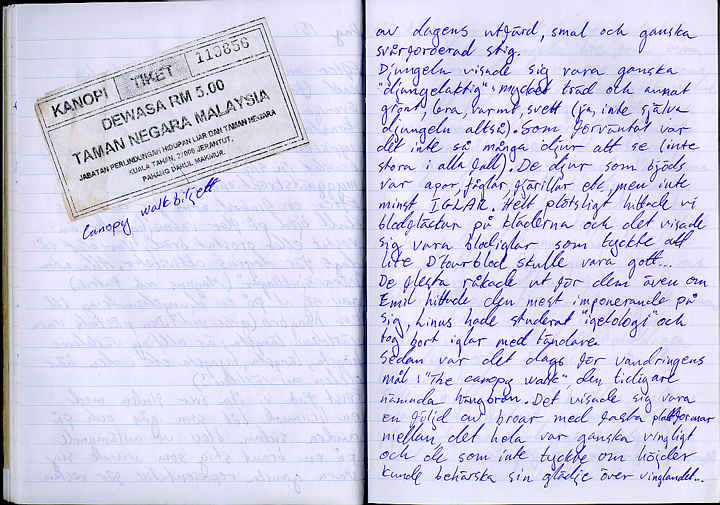 KANOPI TIKET 113856
DEWASA RM 5.00
TAMAN NEGARA MALAYSIA
JABATAN PERLINDUNGAN HIDUPAN LIAR DAN TAMAN NEGARA
KUALA TAHAN, 27000 JERANTUT,
PAHANG DARUL MAKMUR.
Canopy walk biljett
av dagens utfärd, smal och ganska
svårforderad stig.
Djungeln visade sig vara ganska
"djungelaktig", mycket träd och annat
grönt, lera, varmt, svett (ja, inte själva
djungeln alltså). Som förväntat var
det inte så många djur att se (inte
stora i alla fall). De djur som bjöds
var apor, fåglar, fjärillar etc, men inte
minst IGLAR. Helt plötsligt hittade vi
blodfläckar på kläderna och det visade
sig vara blodiglar som tyckte att
lite DTourblod skulle vara gott...
De flesta råkade ut för dem även om
Emil hittade den mest imponerande på
sig, Linus hade studerat "igelologi" och
tog bort iglar med tändare.
Sedan var det dags för vandringens
mål: "The canopy walk", den tidigare
nämnda hängbron. Det visade sig vara
en följd av broar med fasta plattformar
mellan, det hela var ganska vingligt
och de som inte tyckte om höjder
kunde behärska sin glädje över vinglandet...